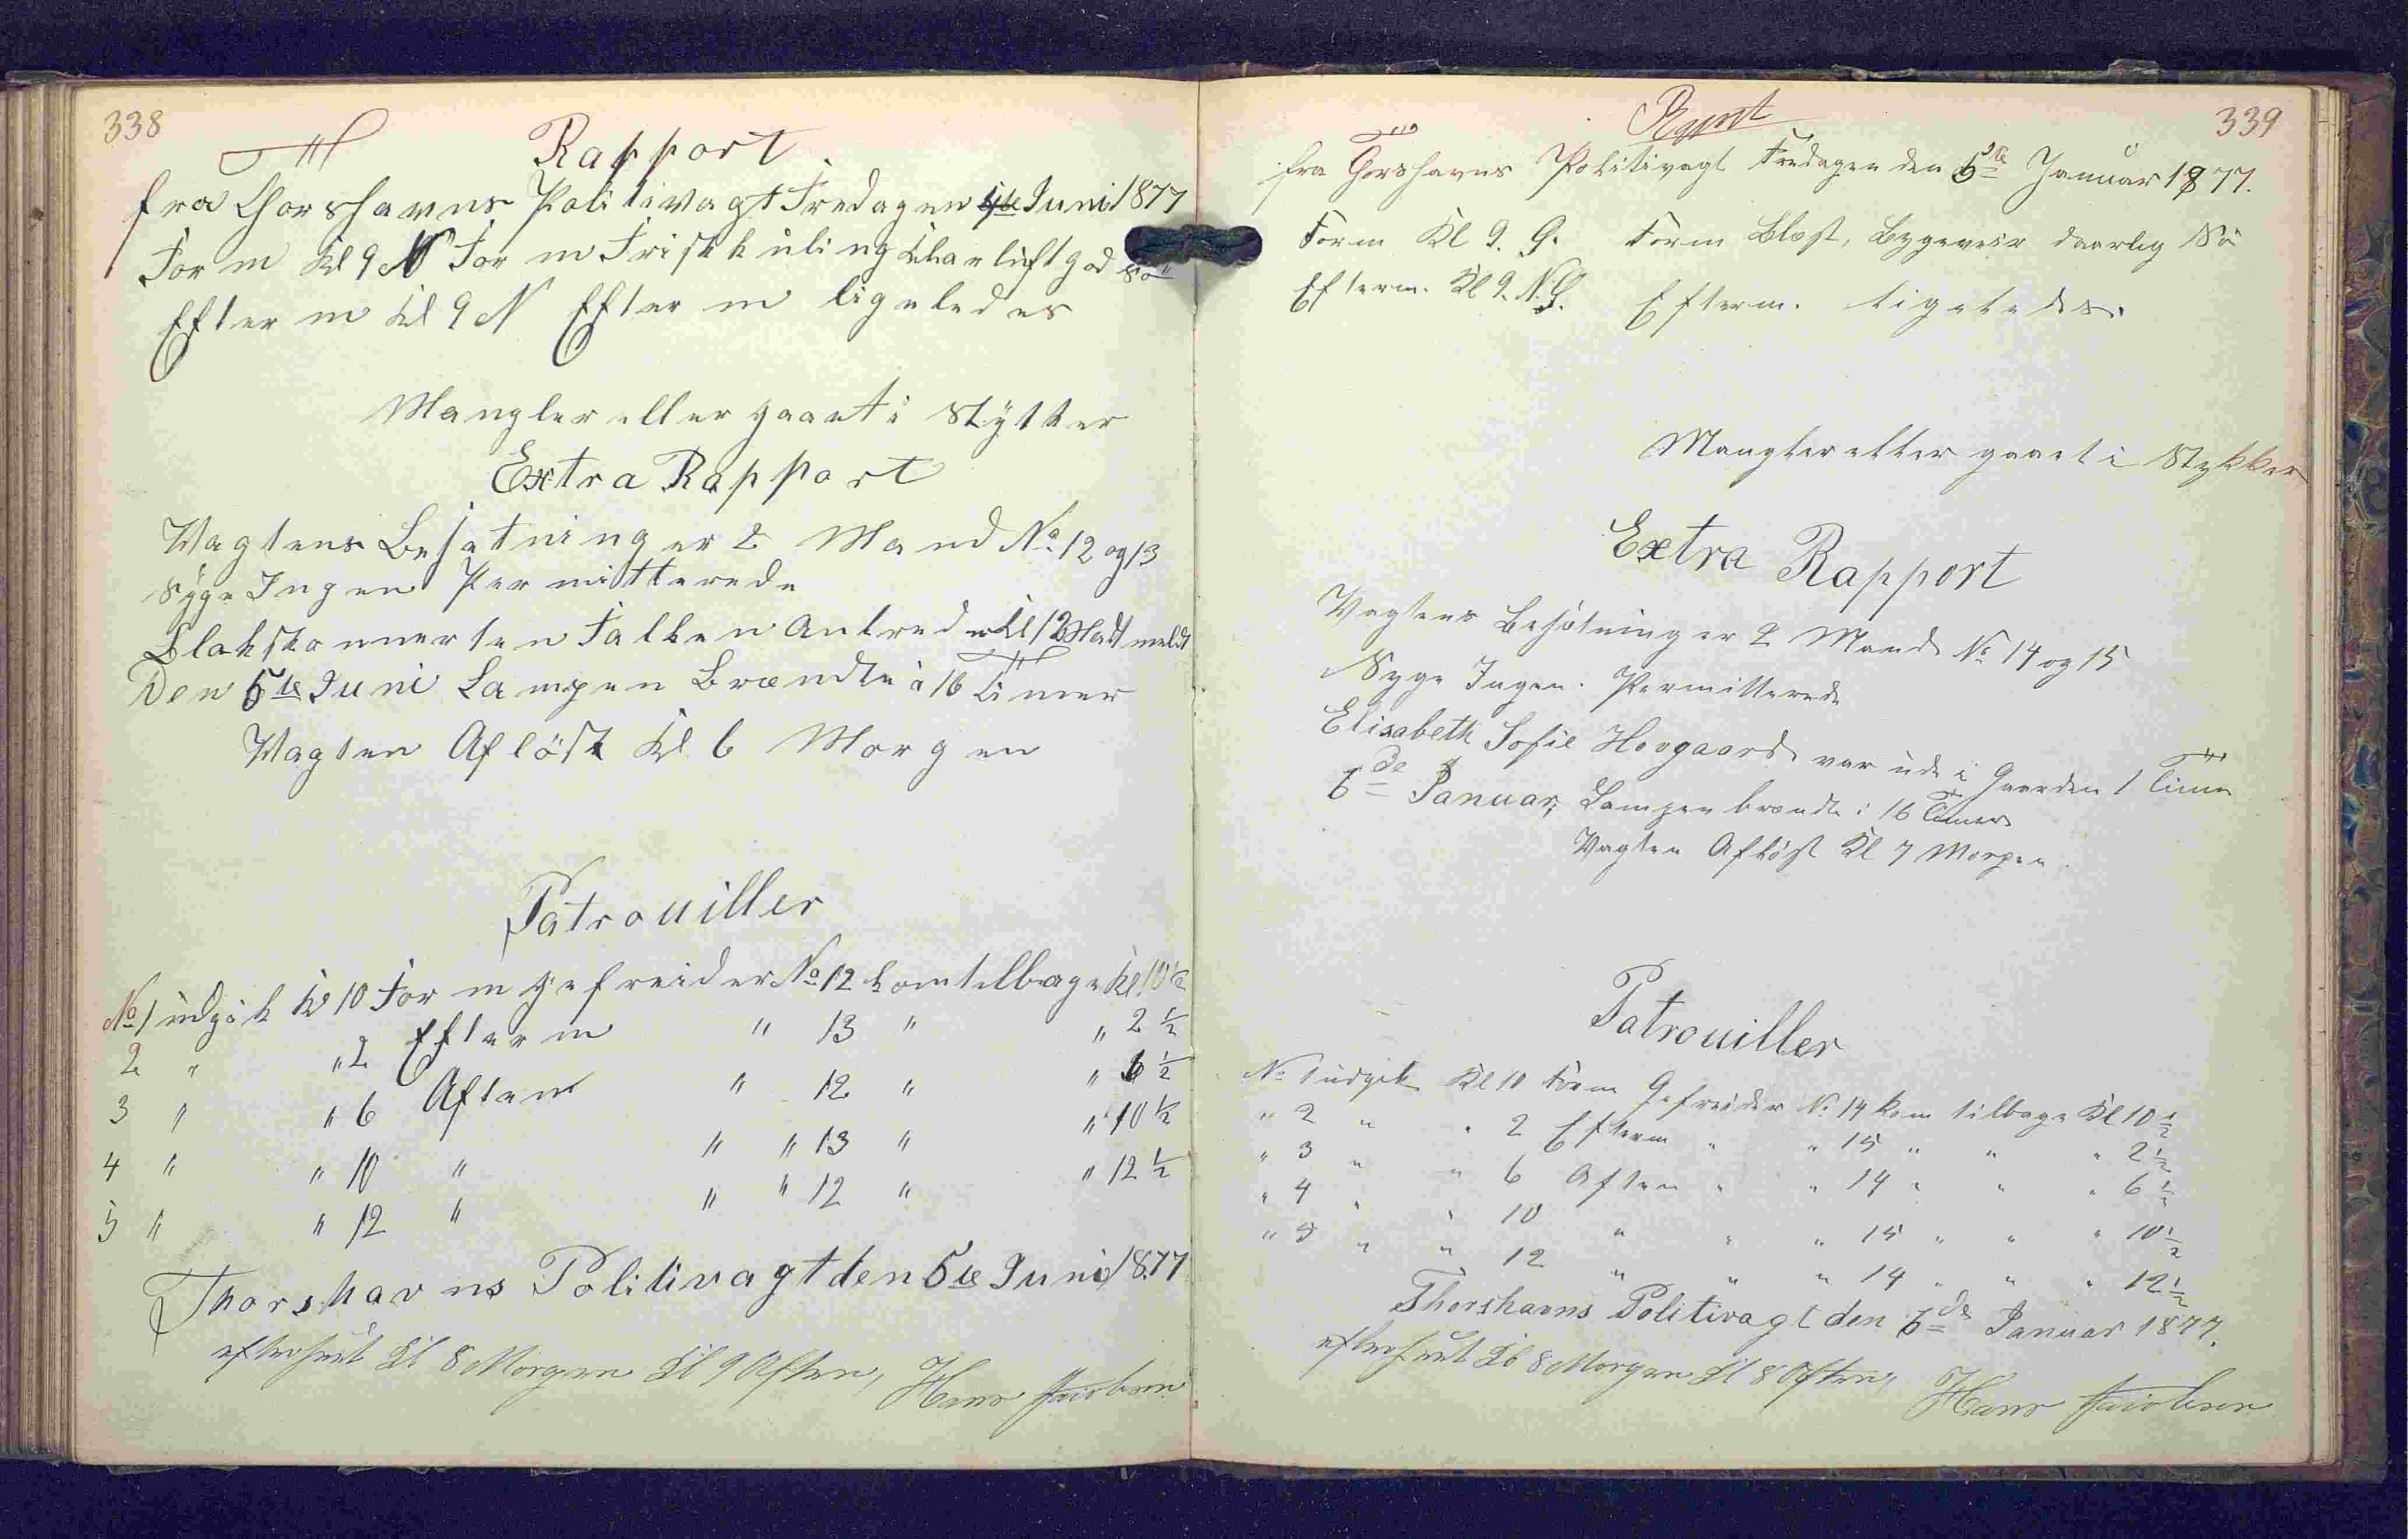 338
Rapport
fra Thorshavns Politivagt Fredagen 4de Juni 1877
Form Kl 9 N Form Frisk kuling klar luft god Sö
Efterm Kl 9 N Efterm ligeledes
Mangler eller gaaet i Stykker
Extra Rapport
Vagtens Besætning er 2 Mand No. 12 og 13
Syge Ingen Permitterede
Slakskonnerten Falken Ankrede Kl 12
Den 5te Juni Lampen Brændte i 16 Timer
Vagten Aflöst Kl 6 Morgen
Patrouiller
No. 1 udgik Kl 10 Form Gefreider No. 12 kom tilbage Kl. 10 1/2
2 " " 2 Efterm " 13 " " 2 1/2
3 " " 6 Aften " 12 " " 6 1/2
4 " " 10 " " " 13 " " 10 1/2
5 " " 12 " " " 12 " " 12 1/2
Thorshavns Politivagt den 5te Juni 1877
efterseet Kl 8 Morgen Kl 9 Aften, Hans Jacobsen
339
Rapport
fra Thorshavns Politivagt Fredagen den 5te Januar 1877.
Form Kl 9. Form Blæst, Bygeveir daarlig Sö
Efterm. Kl 9. Efterm. ligeledes.
Mangler eller gaaet i Stykker
Extra Rapport
Vagtens Besætning er 2 Mand No. 14 og 15
Syge Ingen. Permitterede
Elisabeth Sofie Hovgaard var ude i Gaarden 1 Time
6de Januar, Lampen brændte i 16 Timer
Vagten Aflöst Kl 7 Morgen.
Patrouiller
No. 1 udgik Kl 10 Form Gefreider No. 14 kom tilbage Kl 10 1/2
" 2 " " 2 Efterm " " 15 " " " 2 1/2
" 3 " " 6 Aften " " 14 " " " 6 1/2
" 4 " " 10 " " " 15 " " " 10 1/2
" 5 " " 12 " " " 14 " " " 12 1/2
Thorshavns Politivagt den 6de Januar 1877.
efterseet Kl 8 Morgen Kl 8 Aften, Hans Jacobsen